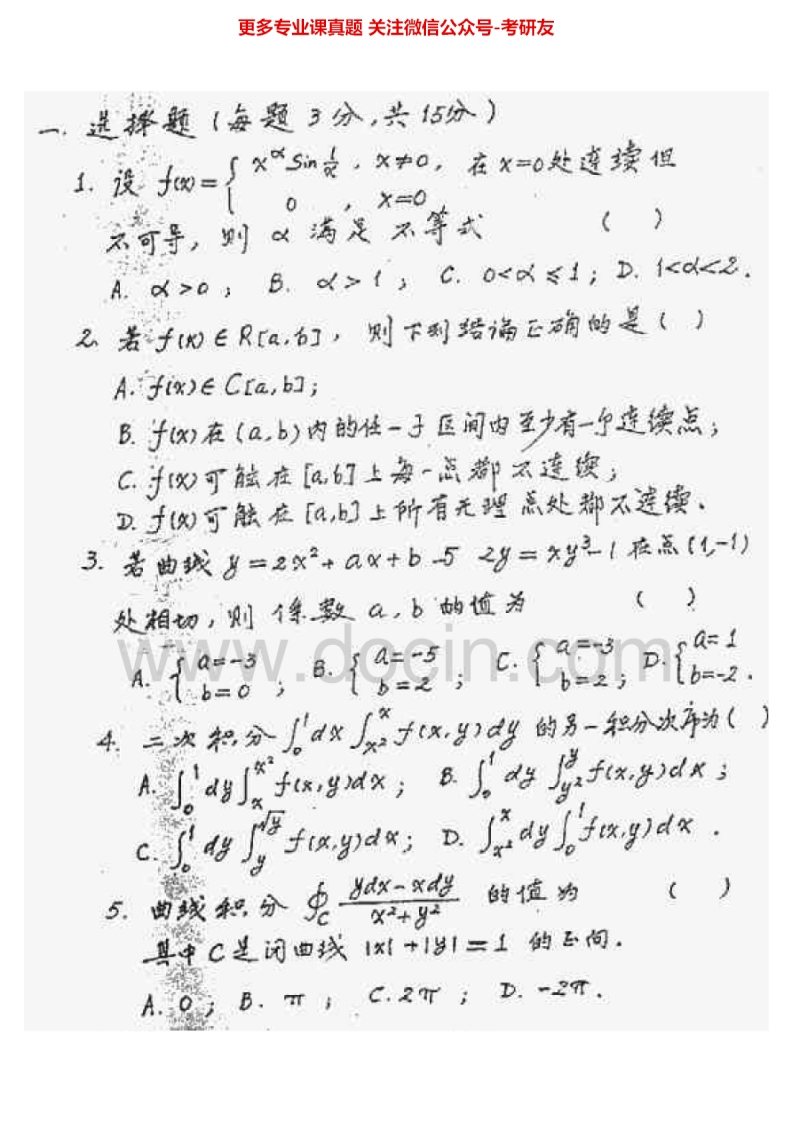 更多专业课真题 关注微信公众号-考研友
一. 选择题(每题3分,共15分)
1. 设 f(x)={ x^α Sin 1/x , x≠0, 在x=0处连续但
0 , x=0
不可导, 则 α 满足 不等式 ( )
A. α>0 ; B. α>1 ; C. 0<α≤1; D. 1<α<2.
2. 若 f(x)∈R[a,b], 则下列结论正确的是( )
A. f(x)∈C[a,b];
B. f(x)在(a,b)内的任一子区间内至少有一个连续点;
C. f(x)可能在[a,b]上每一点都不连续;
D. f(x)可能在[a,b]上所有无理点处都不连续.
3. 若曲线 y=2x²+ax+b 与 2y=xy³-1在点(1,-1)
处相切, 则 系数 a,b 的值为 ( )
www.docin.com
A. { a=-3 b=0 ; B. { a=-5 b=2 ; C. { a=-3 b=2 ; D. { a=1 b=-2 .
4. 二次积分 ∫₀¹dx∫_{x²}^{x} f(x,y)dy 的另一积分次序为( )
A. ∫₀¹dy∫_{x}^{x²} f(x,y)dx ; B. ∫₀¹dy∫_{y²}^{y} f(x,y)dx ;
C. ∫₀¹dy∫_{y}^{√y} f(x,y)dx; D. ∫_{x²}^{x}dy∫₀¹f(x,y)dx .
5. 曲线积分 ∮_C (ydx-xdy)/(x²+y²) 的值为 ( )
其中C是闭曲线 |x|+|y|=1 的正向.
A. 0 ; B. π ; C. 2π ; D. -2π.